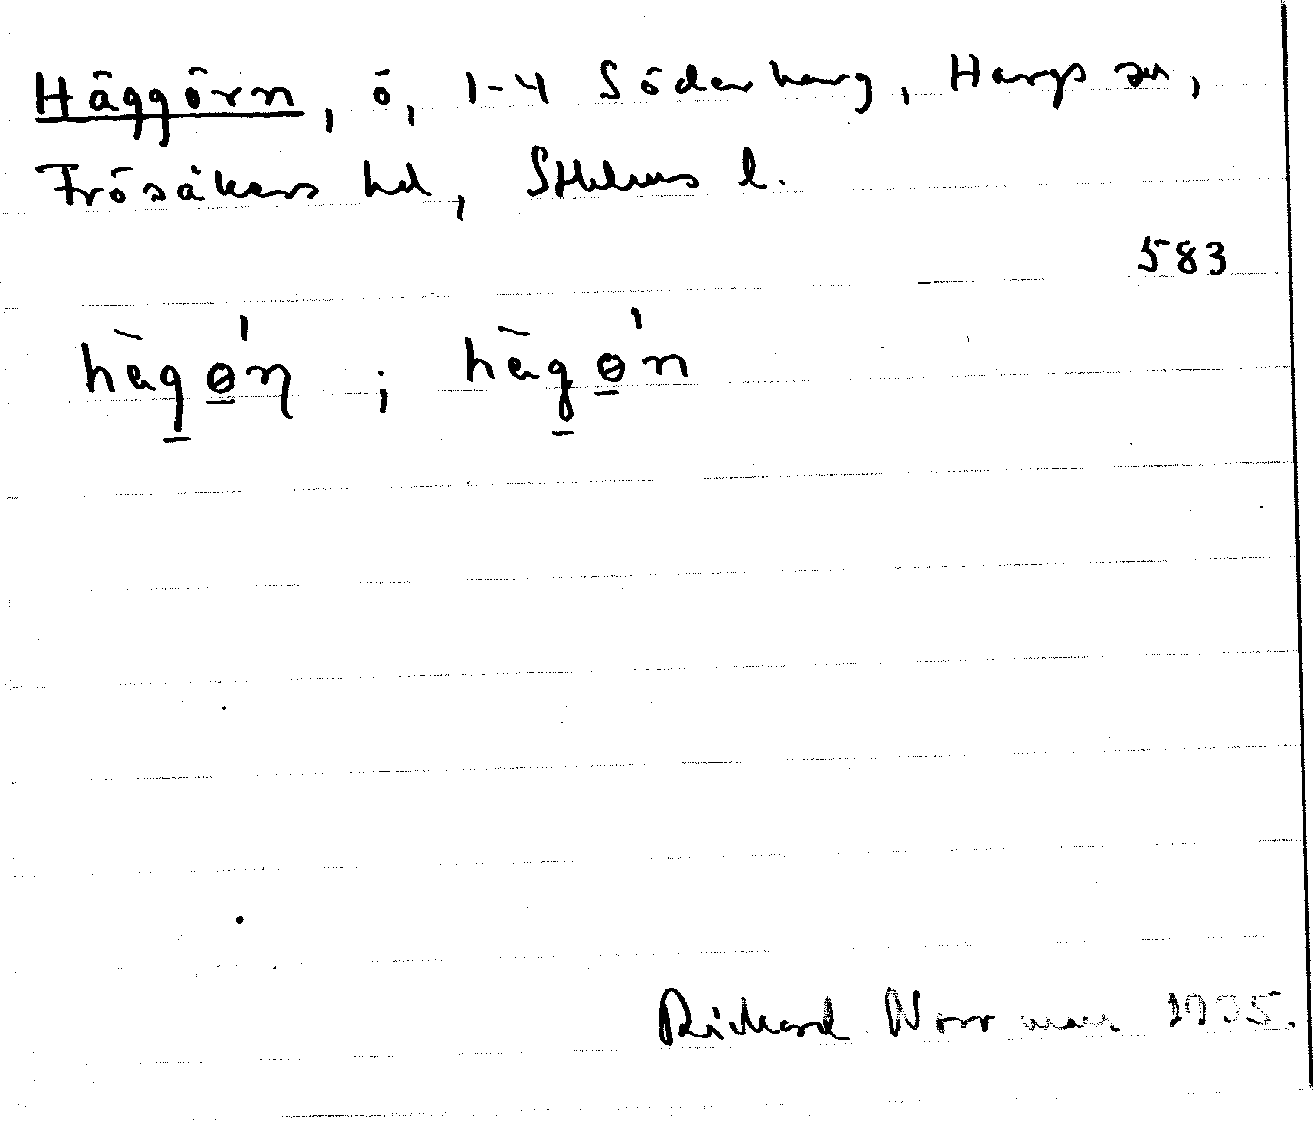 Häggörn, ö, 1-4 Söderharg, Hargs sn,
Frösåkers hd, Sthlms l.
583
hàgө́ꞑ ; hàgө́n
Richard Norrman 1935.